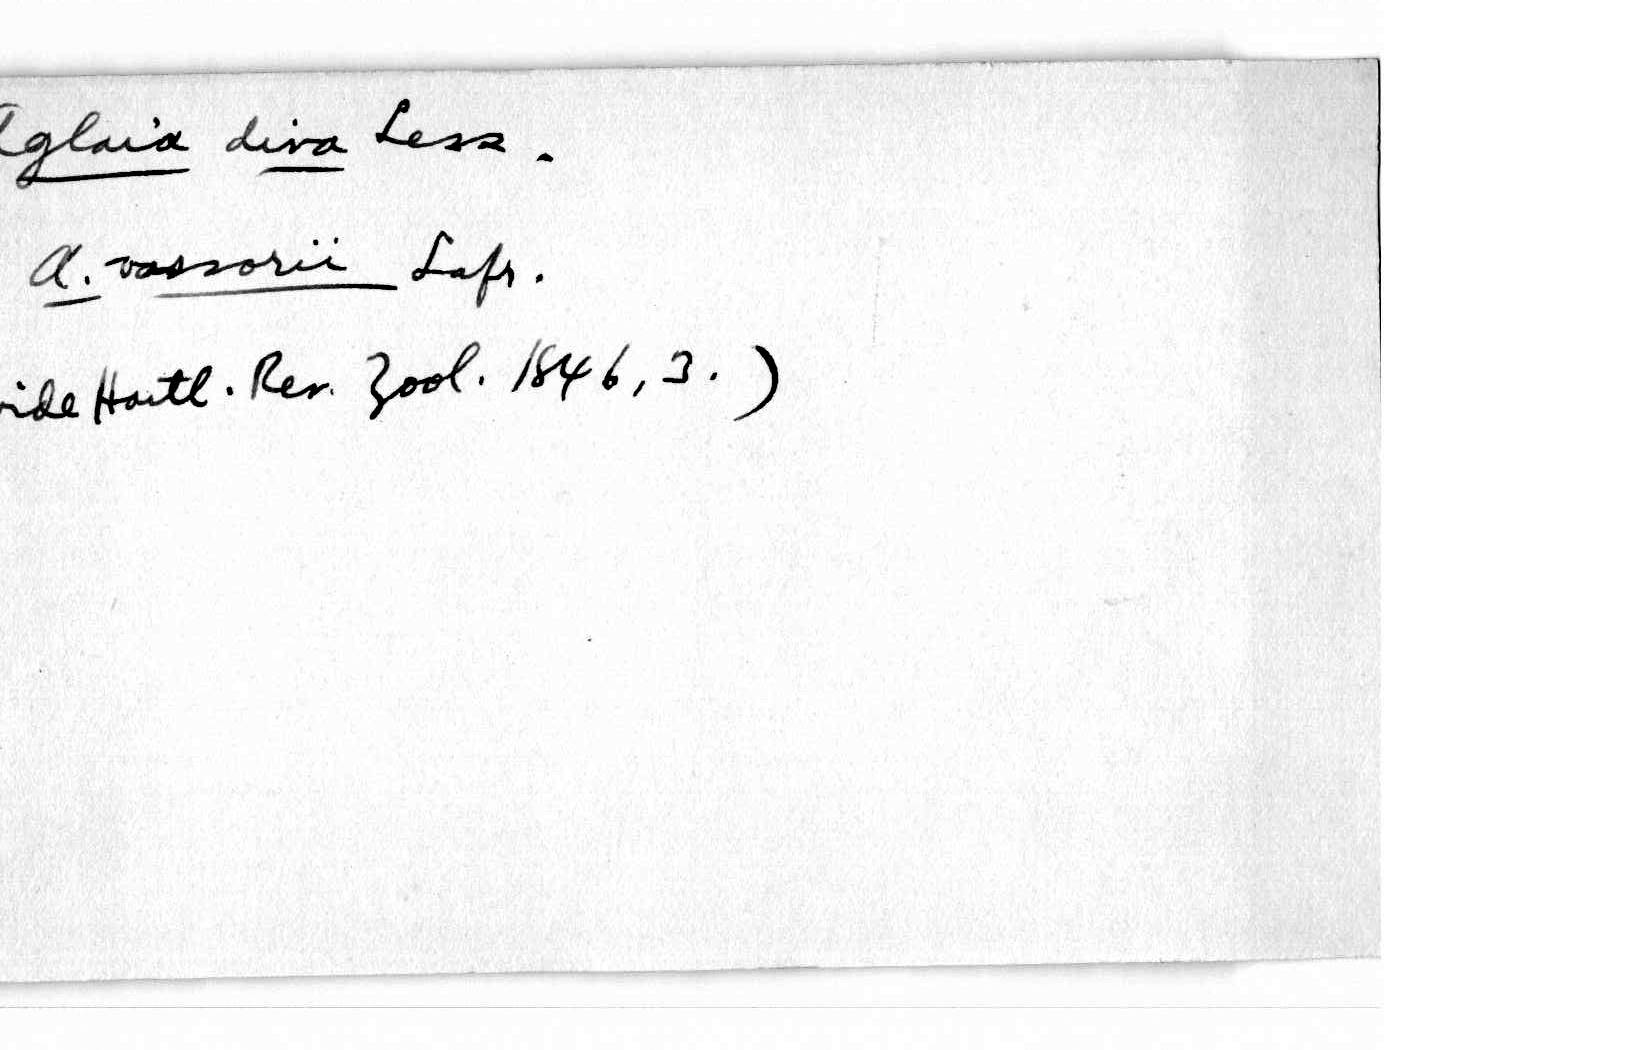 Aglaia diva Less.
A. vassorii Lafr.
vide Hartl. Rev. Zool. 1846, 3.)